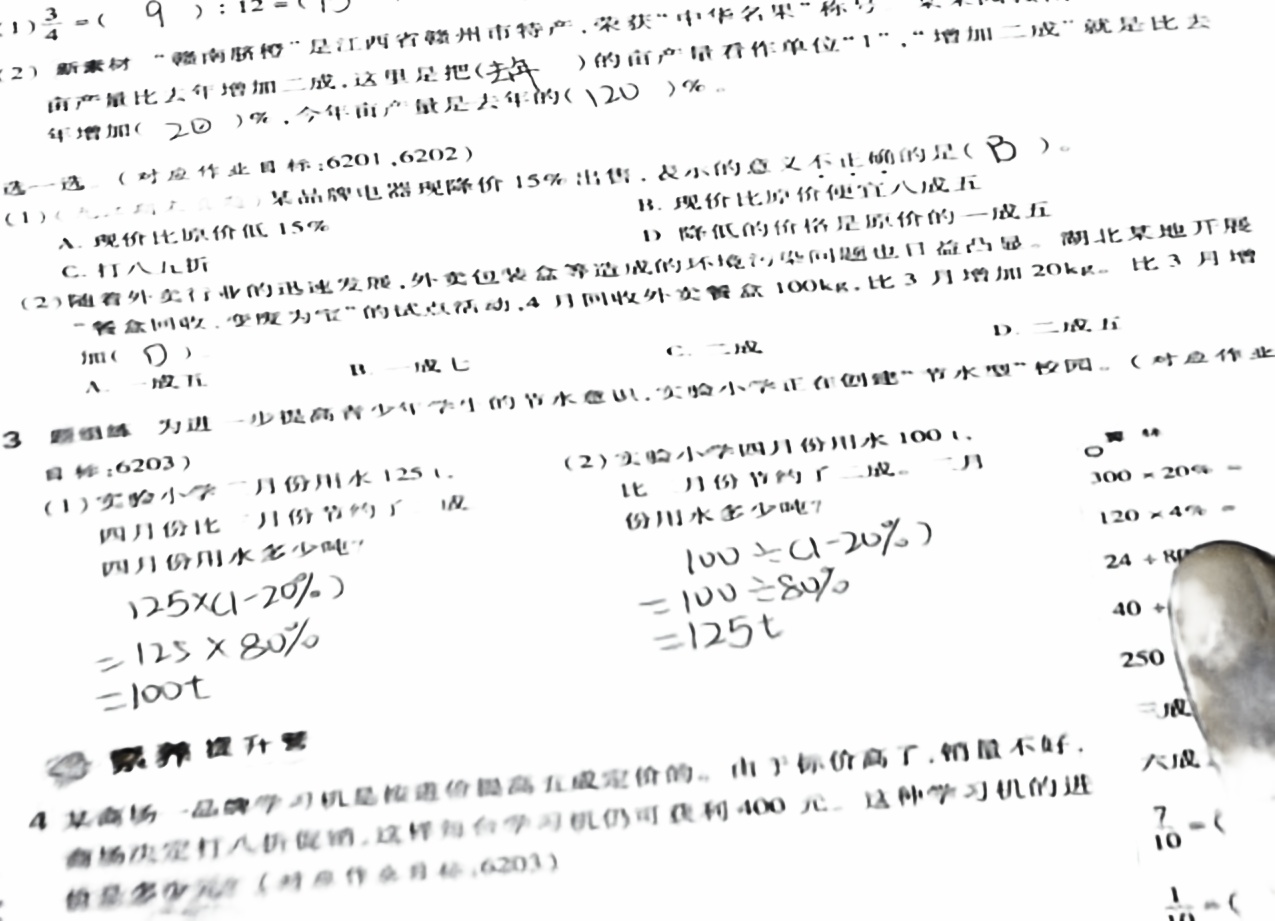 (1) 3/4 = ( 9 ) : 12 = (
(2) 新素材 “赣南脐橙”是江西省赣州市特产,荣获“中华名果”称号
亩产量比去年增加二成,这里是把(去年 )的亩产量看作单位“1”,“增加二成”就是比去
年增加( 20 )%,今年亩产量是去年的( 120 )%。
选一选。(对应作业目标:6201,6202)
(1) 某品牌电器现降价 15% 出售,表示的意义不正确的是( B )。
A. 现价比原价低 15%
B. 现价比原价便宜八成五
C. 打八五折
D. 降低的价格是原价的一成五
(2)随着外卖行业的迅速发展,外卖包装盒等造成的环境污染问题也日益凸显。湖北某地开展
“餐盒回收,变废为宝”的试点活动,4 月回收外卖餐盒 100kg,比 3 月增加 20kg。比 3 月增
加( D )
A. 一成五
B. 一成七
C. 二成
D. 二成五
3 题组练 为进一步提高青少年学生的节水意识,实验小学正在创建“节水型”校园。(对应作业
目标:6203)
(1)实验小学 月份用水 125 t,
四月份比 月份节约了 成
四月份用水多少吨?
125×(1-20%)
=125×80%
=100t
(2)实验小学四月份用水 100 t,
比 月份节约了二成。 月
份用水多少吨?
100÷(1-20%)
=100÷80%
=125t
300 × 20% =
120 × 4% =
24 ÷ 80
40 ÷
250
三成
六成
7/10 = (
1/10 = (
素养提升营
4 某商场一品牌学习机是按进价提高五成定价的。由于标价高了,销量不好,
商场决定打八折促销,这样每台学习机仍可获利 400 元。这种学习机的进
价是多少元?(对应作业目标:6203)